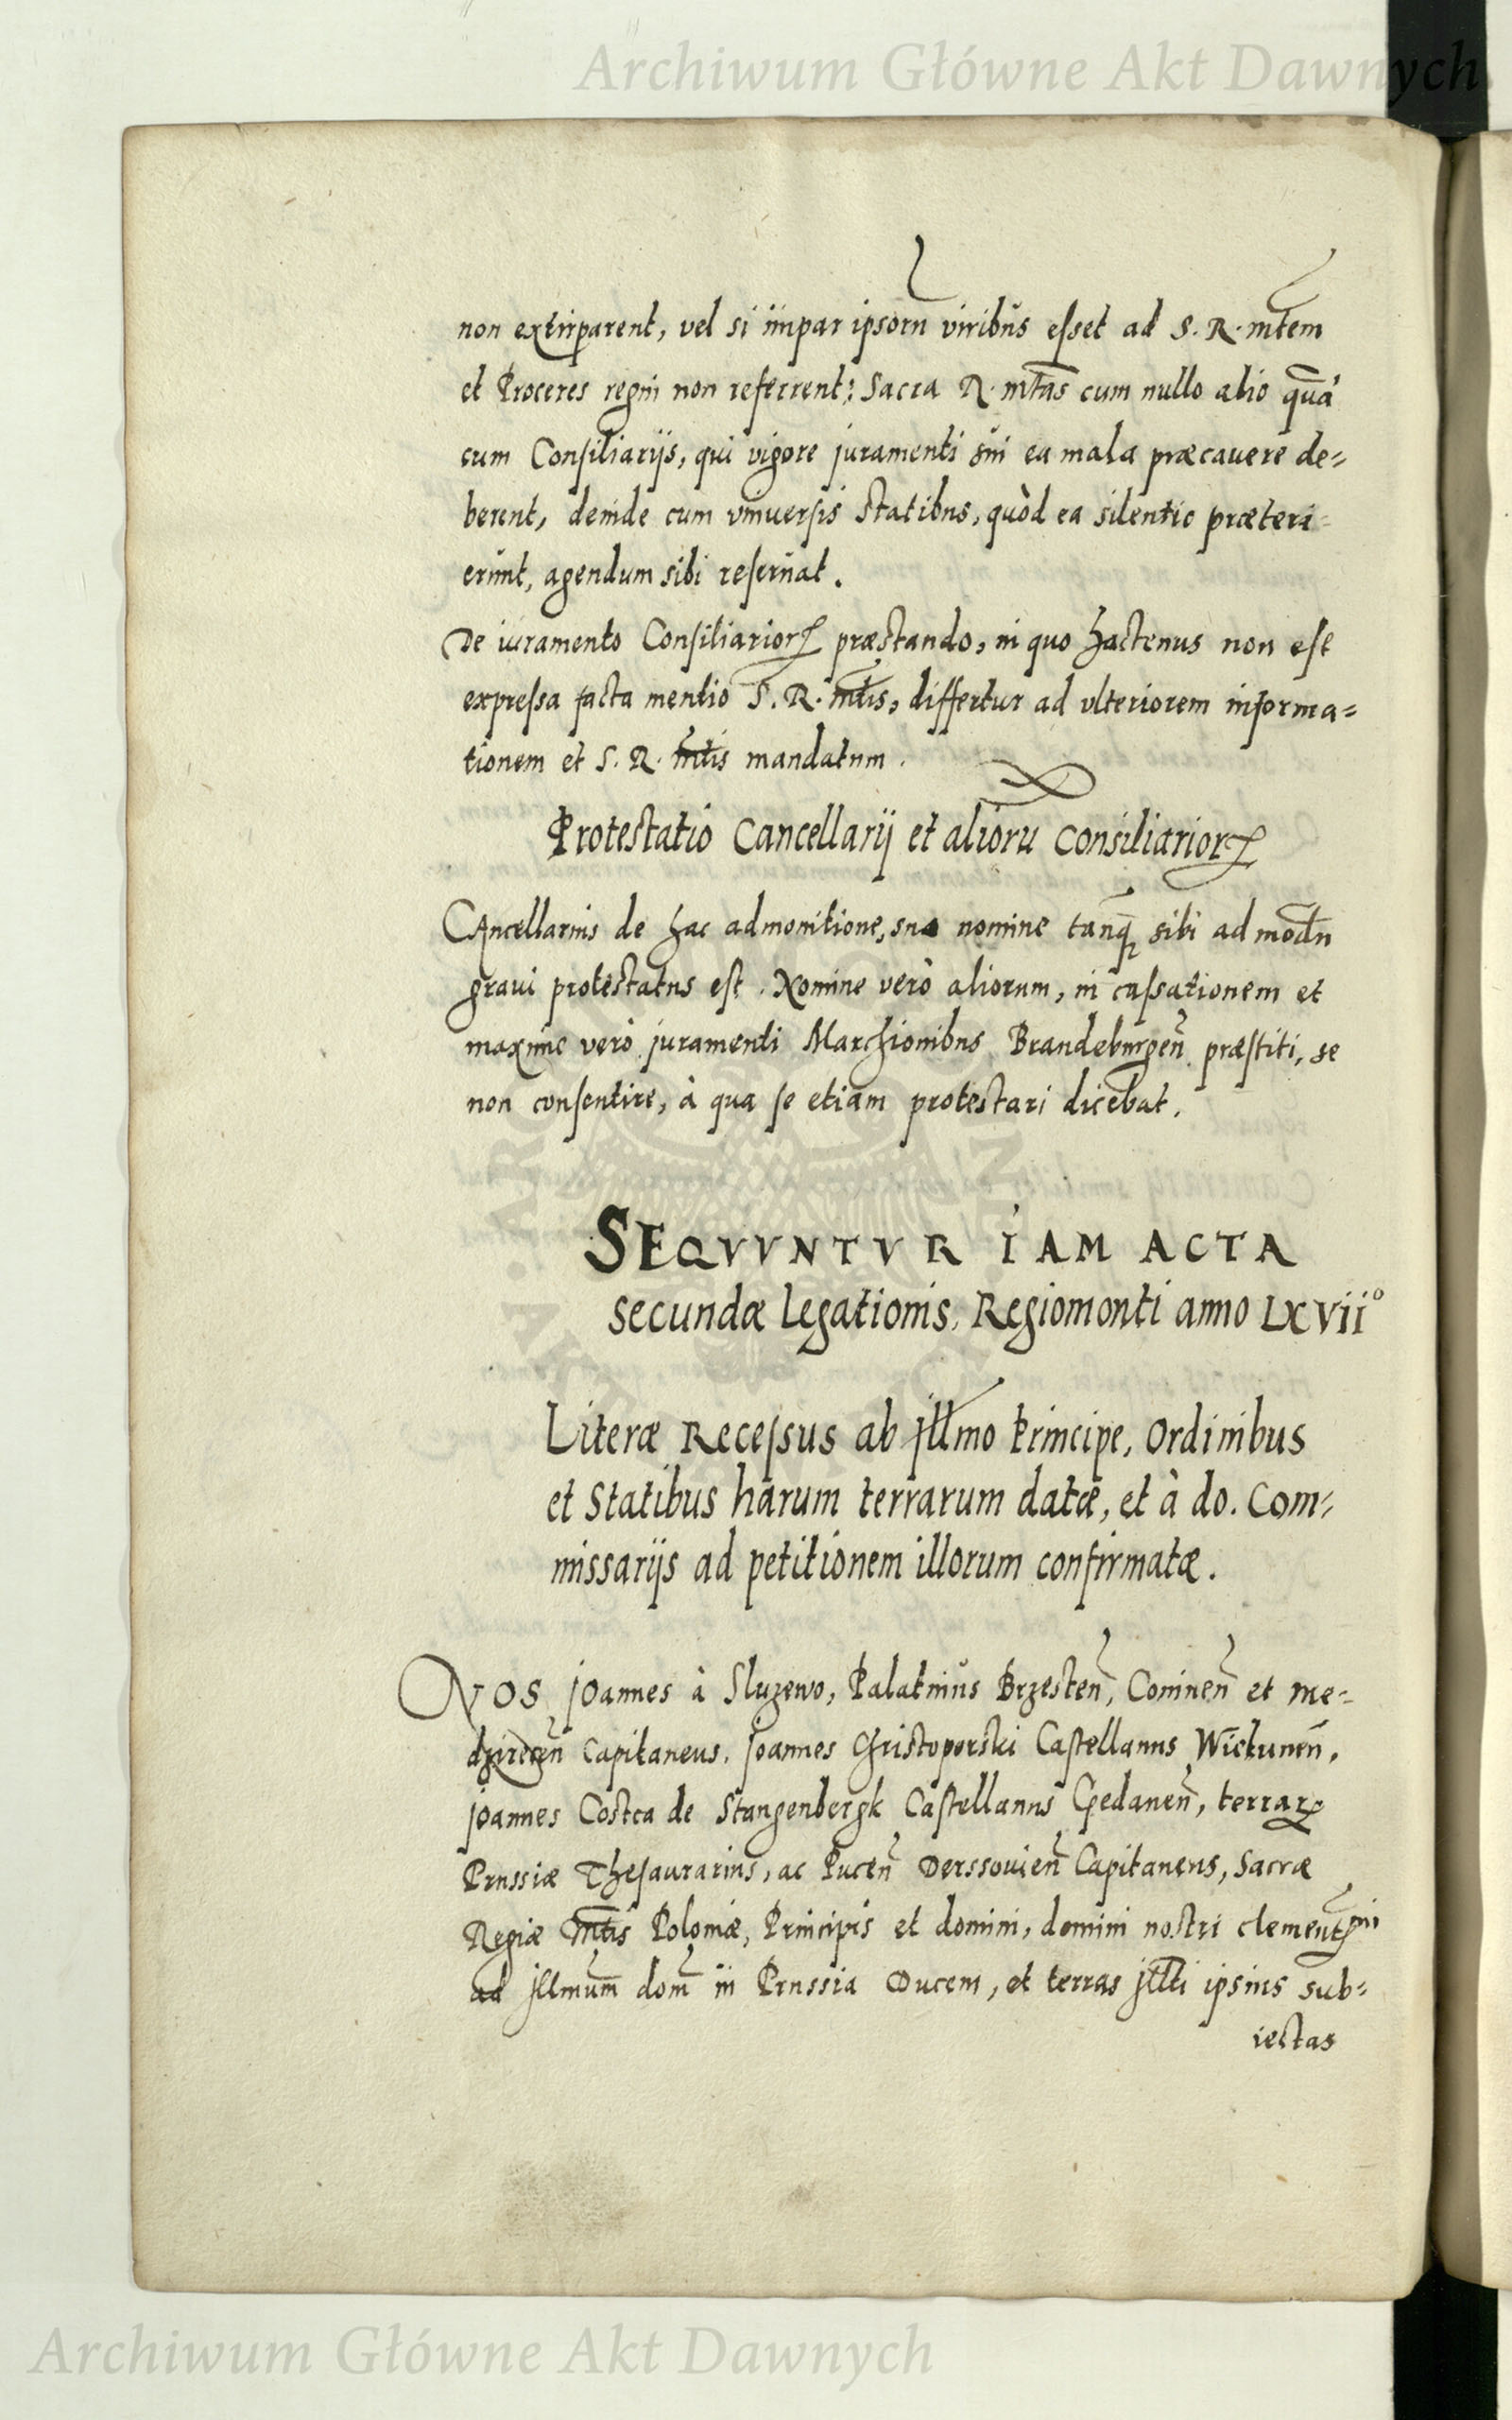 Archiwum Główne Akt Dawnych
non extirparent, vel si impar ipsorũ viribus esset ad S. R. mtem
et Proceres regni non referrent: Sacra R. mtas cum nullo alio quã
cum Consiliarijs, qui vigore juramenti sui ea mala præcavere de=
berent, deinde cum vniversis Statibus, quòd ea silentio præteri=
erunt, agendum sibi reservat.
De iuramento Consiliarioꝝ præstando, in quo hactenus non est
expressa facta mentio S. R. mtis, differtur ad vlteriorem informa=
tionem et S. R. mtis mandatum.
Protestatio Cancellarij et aliorũ Consiliarioꝝ
CAncellarius de hac admonitione, suo nomine tanqꝫ sibi admodũ
gravi protestatus est. Nomine verò aliorum, in cassationem et
maxime verò juramenti Marchionibus Brandeburgeñ præstiti, se
non consentire, à qua se etiam protestari dicebat.
SEQVVNTVR IAM ACTA
secundæ legationis, Regiomonti anno LXVII°
Literæ Recessus ab Jllmo Principe, Ordinibus
et Statibus harum terrarum datæ, et à do. Com=
missarijs ad petitionem illorum confirmatæ.
NOS Joannes à Sluzewo, Palatinus Brzesteñ, Conineñ et Me=
dzireceñ Capitaneus, Joannes Christoporski Castellanus Wieluneñ,
Joannes Costca de Stangenbergk Castellanus Gedaneñ, terrarꝝ
Prussiæ Thesaurarius, ac Puceñ Derssovieñ Capitaneus, Sacræ
Regiæ Mtis Poloniæ, Principis et domini, domini nostri clementssmi
ad Jllmum dom̃ in Prussia Ducem, et terras Jllti ipsius sub=
iectas
Archiwum Główne Akt Dawnych